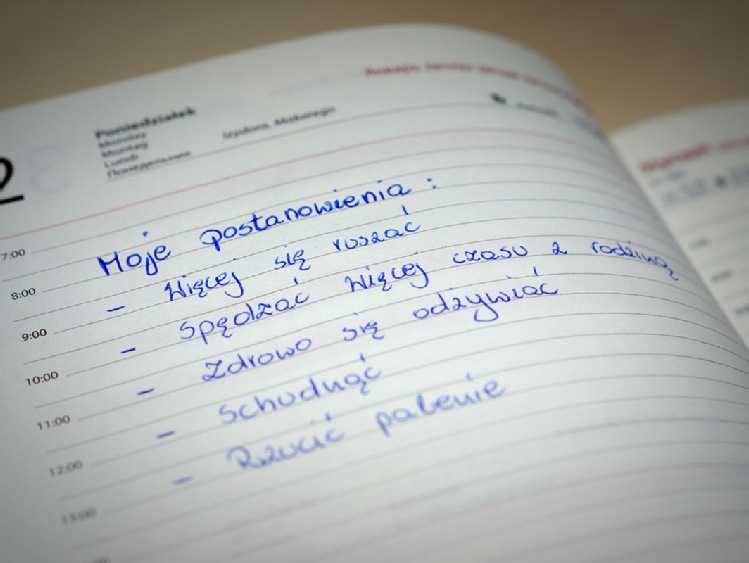 2
Poniedziałek
Monday
Montag
Lundi
Понедельник
Izydora, Makarego
7:00
Moje postanowienia:
8:00
- Więcej się ruszać
9:00
- Spędzać więcej czasu z rodziną
10:00
- Zdrowo się odżywiać
11:00
- Schudnąć
12:00
- Rzucić palenie
13:00